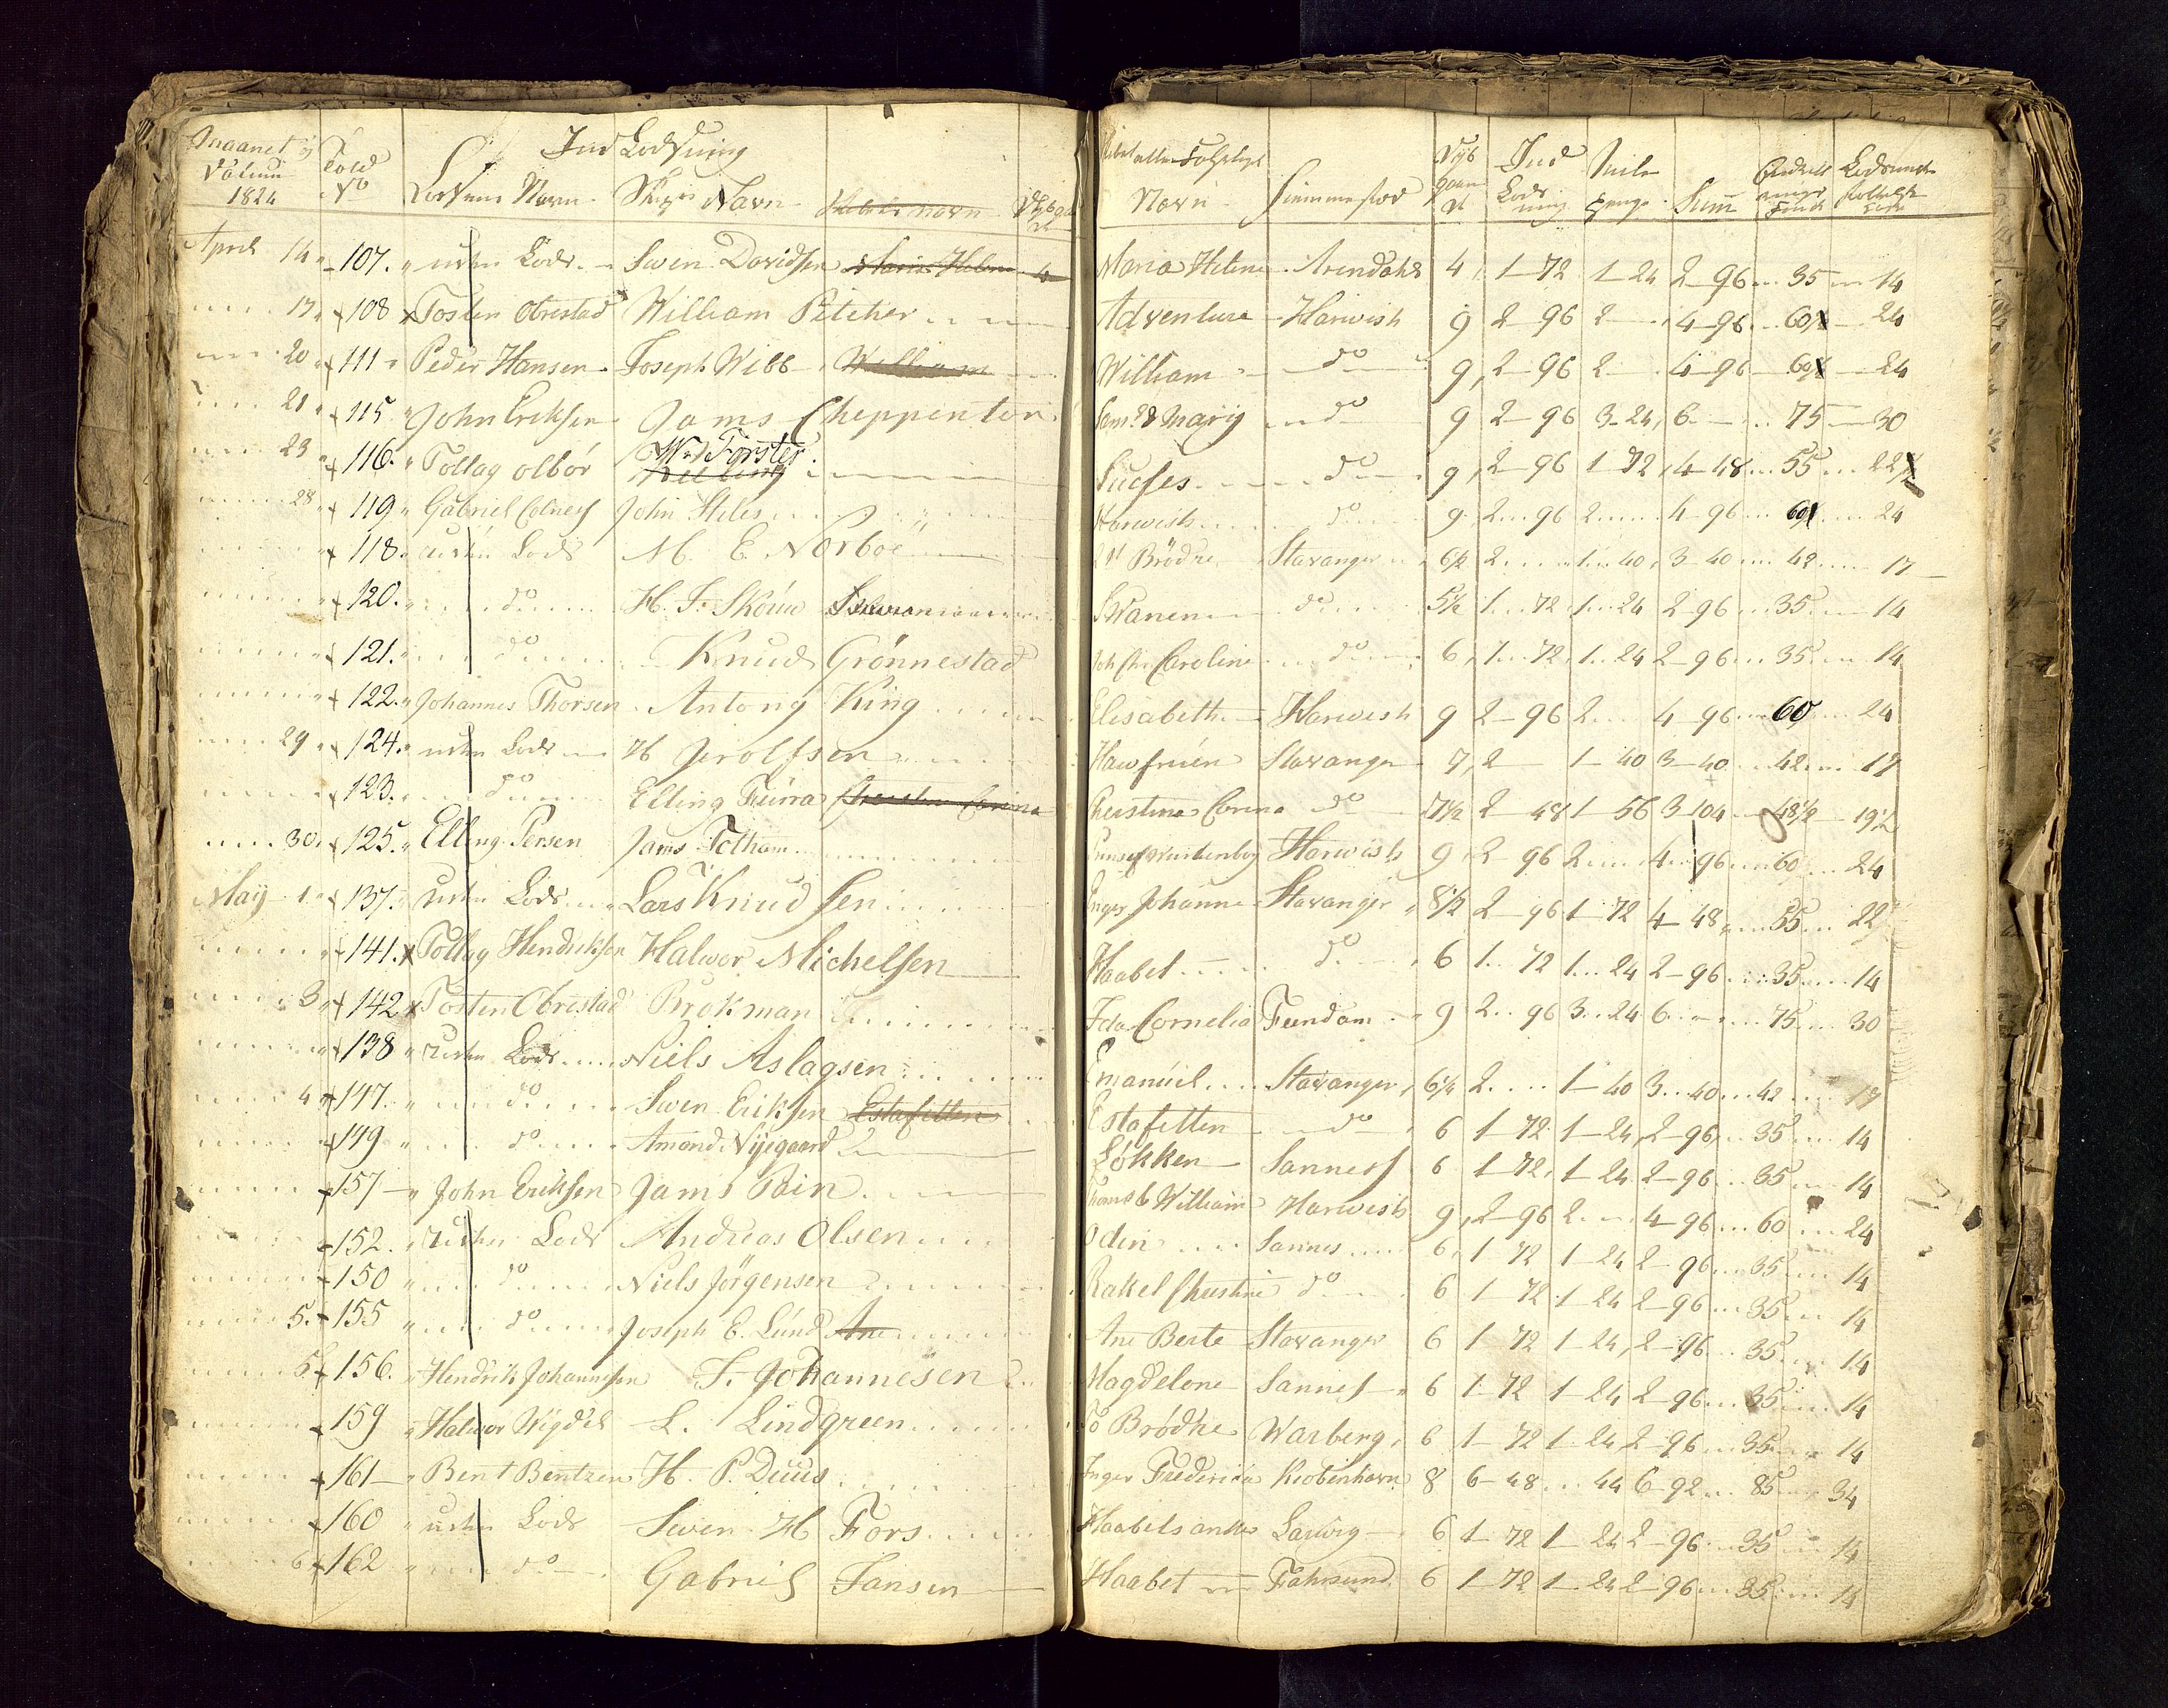 Maanet og Datum 1824 Told No Ind Lodsning
Lodsens Navn Skipr Navn Skibets navn
Navn Hiemmested Ind Lodsning Miile Penge Sum
April 14 107. uden Lods Swen Davidsen Maria Helene 4 Maria Helene Arendahl 4 1-72 1-24 2-96 35 14
17 108 Tosten Obrestad William Pitcher Adventure Harwish 9 2-96 2 4-96 60 24
20 111 Peder Hansen Joseph Webb William William do 9 2-96 2 4-96 60 24
21 115 John Eriksen Jams Cheppenton Saml & Mariy do 9 2-96 3-24 6 75 30
23 116. Tollag olbör Wm Forster Sucses do 9 2-96 1-72 4-48 55 22½
28 119 Gabriel Colnes John Stiles Harwish do 9 2 96 2 4-96 60 24
118. uden Lods M. E. Norboe Brödre Stavanger 6½ 2 1 40 3-40 42 17
120. do H. J. Skóuw Svanen do 5½ 1 72 1 24 2-96 35 14
121. do Knud Grönnestad Caroline do 6 1 72 1 24 2-96 35 14
122. Johannes Thorsen Antony King Elisabeth Harwish 9 2-96 2 4-96 60 24
29 124. uden Lods H Jerolfsen Hawfruen Stavanger 7 2 1-40 3-40 42 17
123. do Elling Fúrra Christina Corina Christina Corina do 7½ 2-48 1-56 3 104 48½ 19½
30. 125. Elling Persen Jams Totham Harwish 9 2-96 2 4-96 60 24
May 1 137. uden Lods Lars Knudsen Inger Johanne Stavanger 8½ 2-96 1-72 4-48 55 22
141. Tollag Hendriksen Halvor Michelsen Haabet do 6 1 72 1 24 2-96 35 14
3 142 Tosten Obrestad Brokman Ida Cornelia Feendam 9 2 96 3 24 6 75 30
138 uden Lods Niels Aslagsen Emanúiel Stavanger 6½ 2 1-40 3 40 42 17
4 147. do Swen Eriksen Estafetten Estafetten do 6 1-72 1-24 2-96 35 14
149 do Amond Nyegaard Løkken Sannes 6 1-72 1-24 2-96 35 14
157 John Eriksen Jams Pain Thoms & William Harwish 9 2-96 2 4-96 60 24
152. uden Lods Andreas Olsen Odin Sannes 6 1 72 1 24 2-96 35 14
150 do Niels Jörgensen Rakel Christine do 6 1-72 1-24 2-96 35 14
5. 155 do Joseph E. Lúnd Ane Ane Berte Stavanger 6 1 72 1-24 2-96 35 14
5 156. Hendrik Johannesen J. Johannesen Magdelone Sannes 6 1-72 1-24 2-96 35 14
159 Halvor Vigdel L. Lindgreen To Brödre Warberg 6 1-72 1 24 2-96 35 14
161 Bent Bentzen H. P. Duus Inger Frederica Kiobenhavn 8 6-48 44 6-92 85 34
160 uden Lods Swen H Fors Haabets anker Larwig 6 1-72 1 24 2-96 35 14
6 162 do Gabriel Jansen Haabet Fahrsund 6 1-72 1-24 2-96 35 14